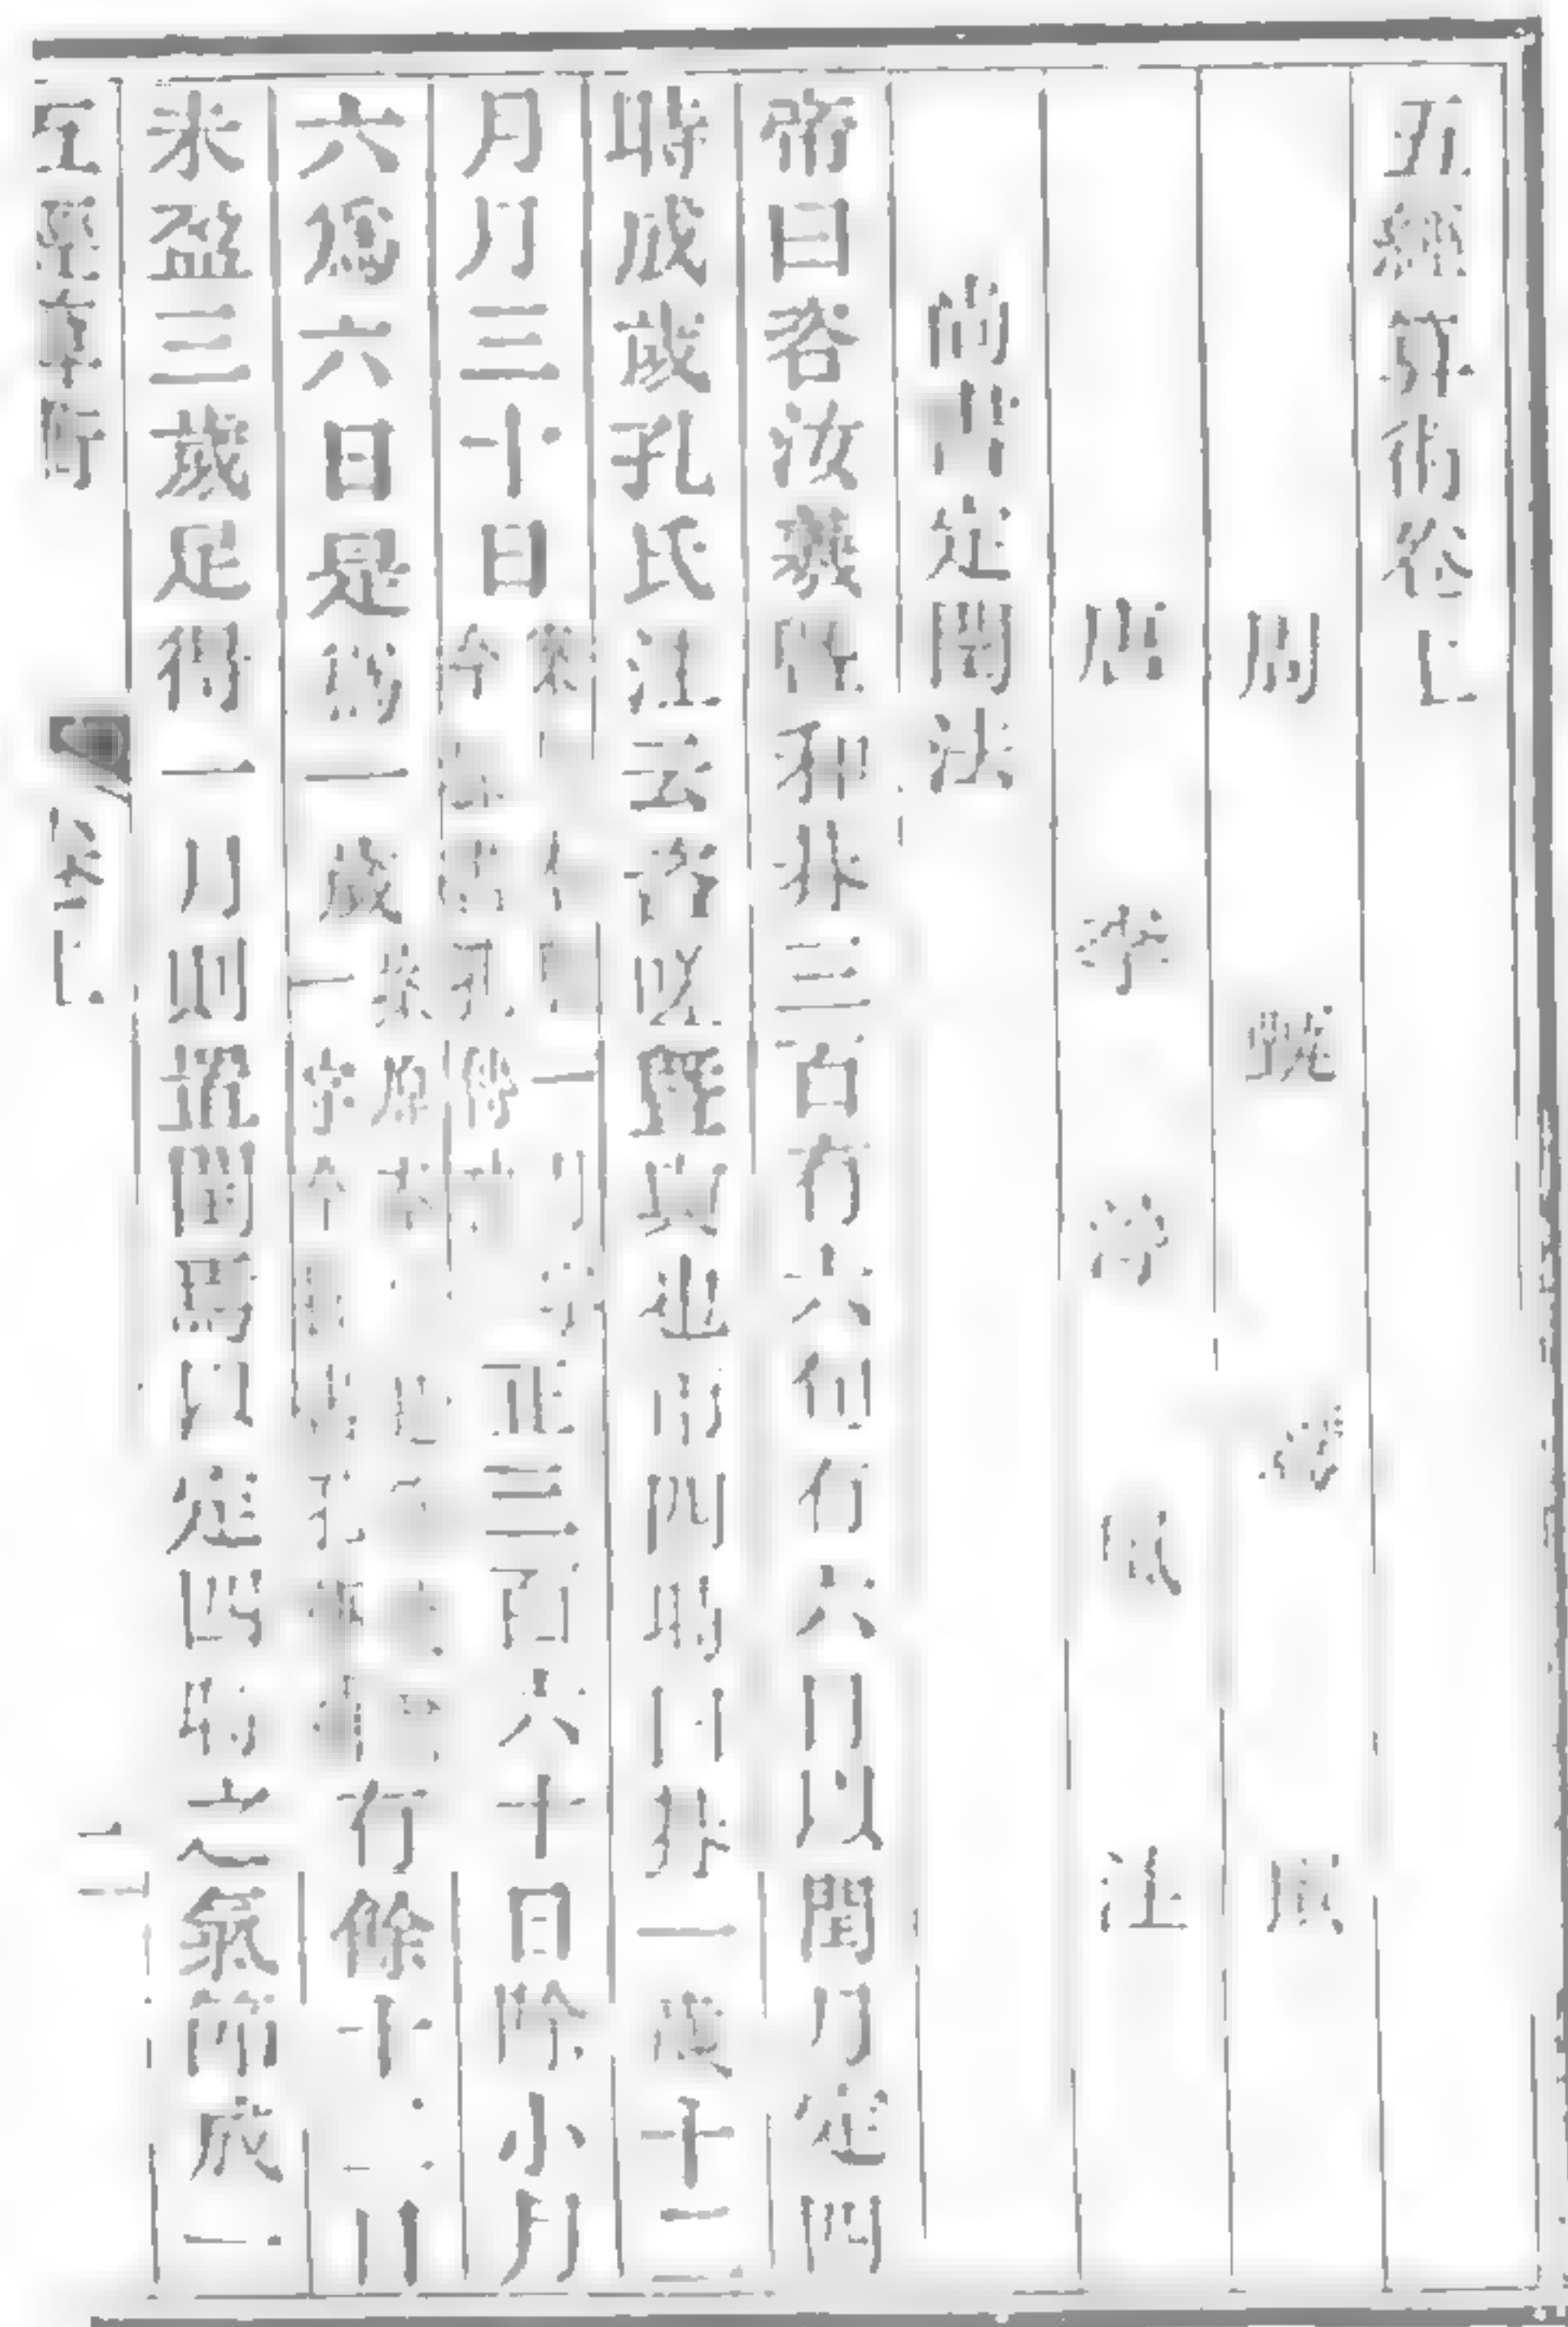 五經算術卷上
周 甄 鸞 撰
唐 李 淳 風 注
尚書定閏法
帝曰咨汝羲暨和朞三百有六旬有六日以閏月定四
時成歲孔氏注云咨嗟暨與也帀四時曰朞一歲十二
月月三十日 一月 今 孔傳 正三百六十日除小月
六爲六日是爲一歲 案原本 一字今 孔 有餘十二日
未盈三歲足得一月則置閏焉以定四時之氣節成一
五經算術 卷上 二